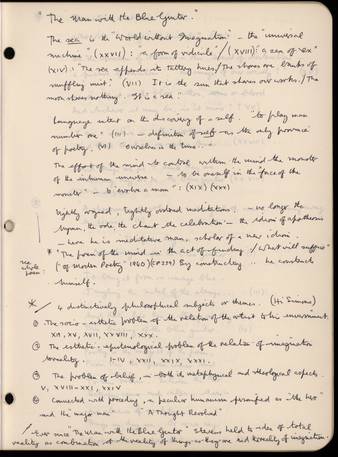 "The Man with the Blue Guitar."
The sea is the "World without Imagination" - the "universal
machine" (XXVII) : a form of ridicule / (XVIII) : a sea of "ex"
(XIV) : "The sea appends its tattery hues, / The shores are banks of
muffling mist." (VII) It is the sun that shares our works, / The
moon shares nothing. It is a sea."
Language extent on the discovery of a self. "to play man
number one" (IV) - definition of self is the only province
of poetry. (VI) Ourselves in the tune
The effort of the mind to control within the mind the monster
of the inhuman universe. - to be oneself in the face of the
monster - to "evolve a man" : (XIX) (XXX)
tightly argued, tightly ordered meditations. - no longer the
hymn, the ode, the chant, the celebration - the idiom of apotheosis
- here he is meditative man, scholar of a new idiom.
* "The poem of the mind in the act of finding / What will suffice"
("Of Modern Poetry" 1940) (CP239) By constructing he constructs
himself.
see
whole
poem
* / 4 distinctively philosophical subjects or themes. (Hi Simons)
① The socio-esthetic problem of the relation of the artist to his environment.
XII, XV, XVII, XXVIII, XXX.
② The esthetic - epistemological problem of the relation of imagination
to reality. I-IV, XXII, XXIX, XXXI.
③ The problem of belief, in both its metaphysical and theological aspects.
V, XVIII-XXI, XXIV
④ Connected with preceding, a peculiar humanism personified as "the hero"
and "his major man" "A Thought Revolved"
/ Ever since "The Man with the Blue Guitar" Stevens held to idea of total
reality as combination of the reality of things as they are and the reality of imagination.